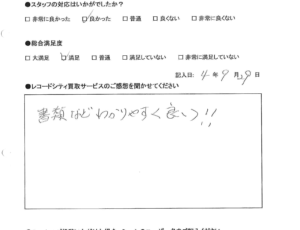 ●スタッフの対応はいかがでしたか?
□ 非常に良かった ☑ 良かった □ 普通 □ 良くない □ 非常に良くない
●総合満足度
□ 大満足 ☑ 満足 □ 普通 □ 満足していない □ 非常に満足していない
記入日: 4年9月19日
●レコードシティ買取サービスのご感想を聞かせてください
書類などわかりやすく良い!!